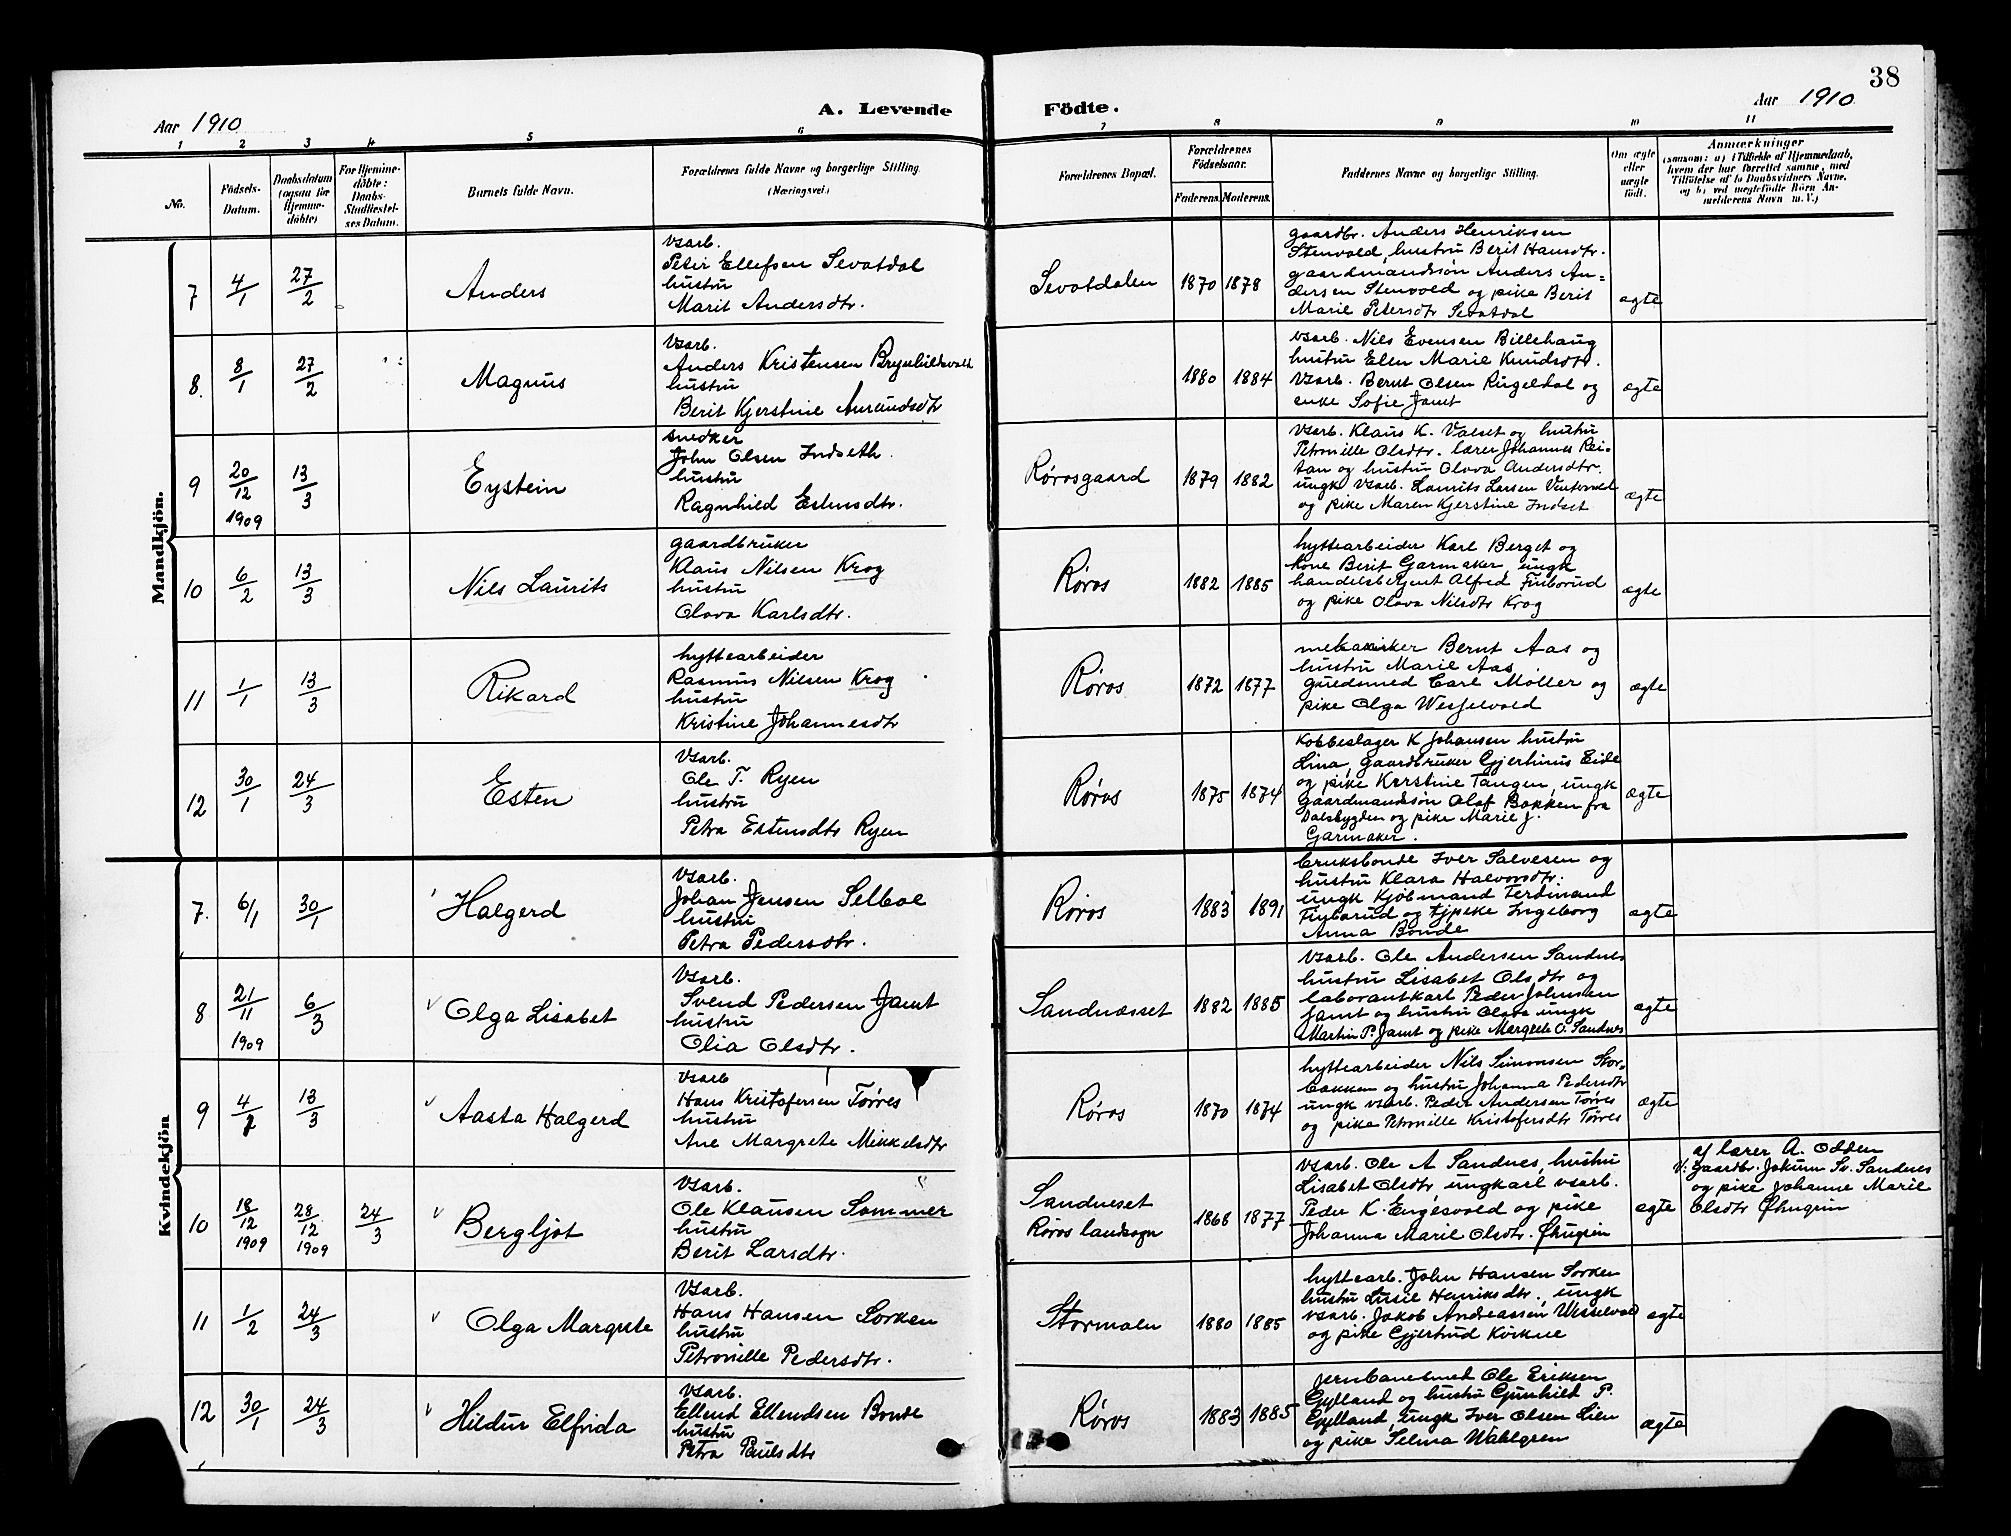 38
Aar 1910
A. Levende
Födte.
Aar 1910
1 2 3 4 5 6 7 8 9 10 11
No.
Födsels-Datum.
Daabsdatum (ogsaa for Hjemme-döbte)
For Hjemme-döbte: Daabs-Stadfæstel-ses Datum.
Barnets fulde Navn.
Forældrenes fulde Navne og borgerlige Stilling.
(Næringsvei.)
Forældrenes Bopæl.
Forældrenes Födselsaar.
Faderens. Moderens.
Faddernes Navne og borgerlige Stilling.
Om ægte eller uægte födt.
Anmærkninger
(saasom: a) i Tilfælde af Hjemmedaab,
hvem der har forrettet samme, med
Tilföielse af to Daabsvidners Navne,
og b) ved uegtefödte Börn An-
melderens Navn m. V.)
Mandkjön.
7 4/1 27/2 Anders
Vsarb.
Peter Ellefsen Sevatdal
hustru
Marit Andersdtr.
Sevatdalen 1870 1878
gaardbr. Anders Henriksen
Stenvold, hustru Berit Hansdtr.
gaardmandssøn Anders An-
dersen Stenvold og pike Berit
Marie Petersdtr Sevatdal
ægte
8. 8/1 27/2 Magnus
Vsarb.
Anders Kristensen Brynhildsvold
hustru
Berit Kjerstine Amundsdtr
1880 1884
vsarb. Nils Evensen Billehaug
hustru Ellen Marie Knudsdtr.
Vsarb. Bernt Olsen Ringeldal og
enke Sofie Jamt
ægte
9 20/12 1909 13/3 Eystein
snedker
John Olsen Indseth.
hustru
Ragnhild Estensdtr.
Rørosgaard 1879 1882
vsarb. Klaus K. Valset og hustru
Petronille Olsdtr. lærer Johannes Rei-
tan og hustru Olava Andersdtr.
ungk vsarb. Laurits Larsen
og pike Maren Kjerstine Indset
ægte
10 6/2 13/3 Nils Laurits
gaardbruker
Klaus Nilsen Krog
hustru
Olava Karlsdtr.
Røros 1882 1885
hyttearbeider Karl Berget og
kone Berit Garmaker, ungk
handelsbetjent Alfred Finborud
og pike Olava Nilsdtr Krog
ægte
11 1/1 13/3 Rikard
hyttearbeider
Rasmus Nilsen Krog
hustru
Kristine Johannesdtr
Røros 1872 1877
mekaniker Bernt Aas og
hustru Marie Aas
guldsmed Carl Møller og
pike Olga Wesselvold
ægte
12 30/1 24/3 Esten
Vsarb.
Ole T. Ryen
hustru
Petra Estensdtr Ryen
Røros 1875 1874
Kobbeslager K Johansen hustru
Lina, gaardbruker Gjerhinus Eide
og pike Kerstine Tangen, ungk
gaardmandssøn Olaf Bakken fra
Dalsbygden og pike Marie J.
Garmaker.
ægte
Kvindekjön
7. 6/1 30/1 Halgerd
Vsarb.
Johan Jensen Selboe
hustru
Petra Pedersdtr.
Røros 1883 1891
bruksbonde Iver Salvesen og
hustru Klara Halvorsdtr.
ungk kjøbmand Ferdinand
Finborud og tjpike Ingeborg
Anna Bonde
ægte
8 21/11 1909 6/3 Olga Lisabet
Vsarb.
Svend Pedersen Jamt
hustru
Olia Olsdtr.
Sandnæsset 1882 1885
Vsarb. Ole Andersen Sandnes
hustru Lisabet Olsdtr og
laborantkarl Peder Johnsen
Jamt og hustru Olava ungk
Martin P. Jamt og pike Margrete O. Sandnes
ægte
9 4/2 13/3 Aasta Halgerd
Vsarb
Hans Kristofersen Tørres
hustru
Ane Margrete Mikkelsdtr
Røros 1870 1874
hyttearbeider Nils Simonsen Stor-
bakken og hustru Johanna Pedersdtr
ungk vsarb. Peder Andersen Tørres
og pike Petronille Kristofersdtr Tørres
ægte
10 18/12 1909 28/12 1909 24/3 Bergljot
Vsarb.
Ole Klausen Sommer
hustru
Berit Larsdtr.
Sandneset
Røros landsogn
1868 1877
Vsarb. Ole A Sandnes, hustru
Lisabet Olsdtr, ungkarl vsarb.
Peder K. Engesvold og pike
Johanna Marie Olsdtr. Øhugsin
ægte
af lærer A. Odden
V: gaardbr. Jokum Sv. Sandnes
og pike Johanne Marie
Olsdtr Øhugsin
11 1/2 24/3 Olga Margrete
Vsarb.
Hans Hansen Sorken
hustru
Petronille Pedersdtr.
Stormoen 1880 1885
hyttearb. John Hansen Sorken
hustru Lusie Henriksdtr, ungk
vsarb. Jakob Andreassen Wesselvold
og pike Gjertrud Kvikne
ægte
12 30/1 24/3 Hildur Elfrida
Vsarb.
Ellend Ellendsen Bonde
hustru
Petra Paulsdtr
Røros 1883 1885
jernbanesmed Ole Eriksen
Gylland og hustru Gunhild P.
Gylland, ungk Iver Olsen Lien
og pike Selma Wahlgren
ægte